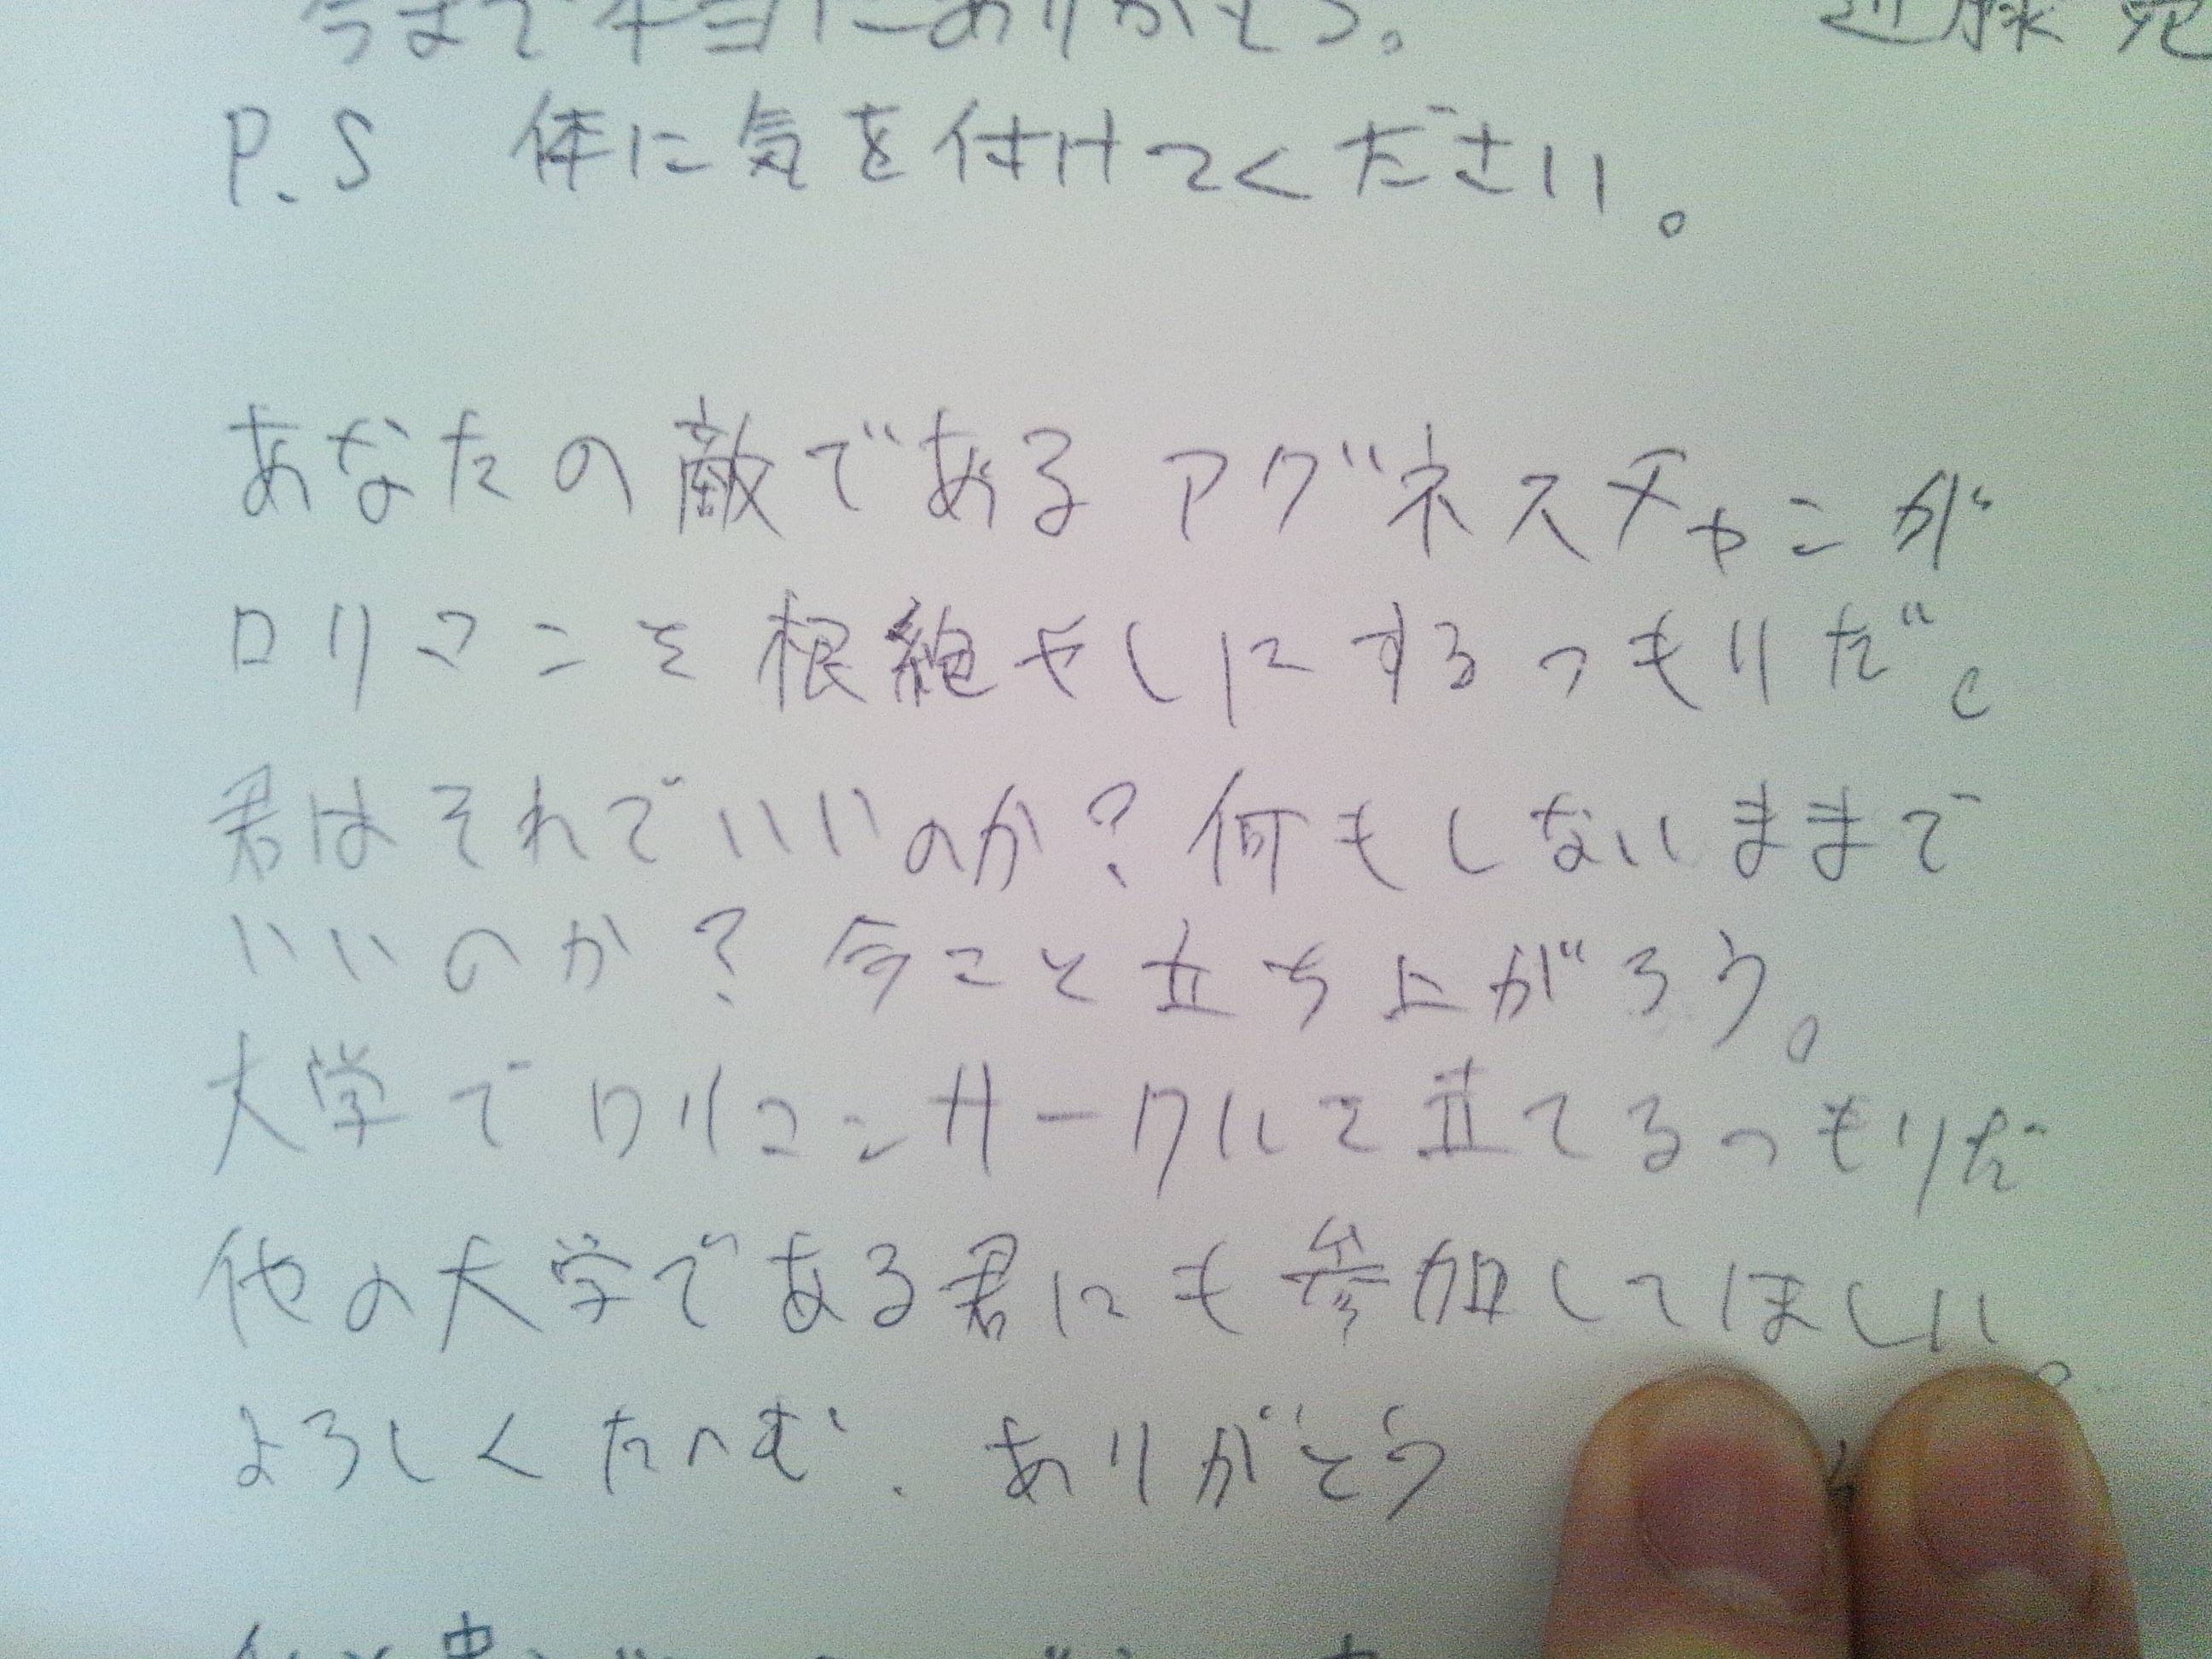 今まで本当にありがとう。 近藤
P.S 体に気を付けてください。
あなたの敵であるアグネスチャンが
ロリコンを根絶やしにするつもりだ。
君はそれでいいのか?何もしないままで
いいのか?今こそ立ち上がろう。
大学でロリコンサークルを立てるつもりだ
他の大学である君にも参加してほしい。
よろしくたのむ. ありがとう